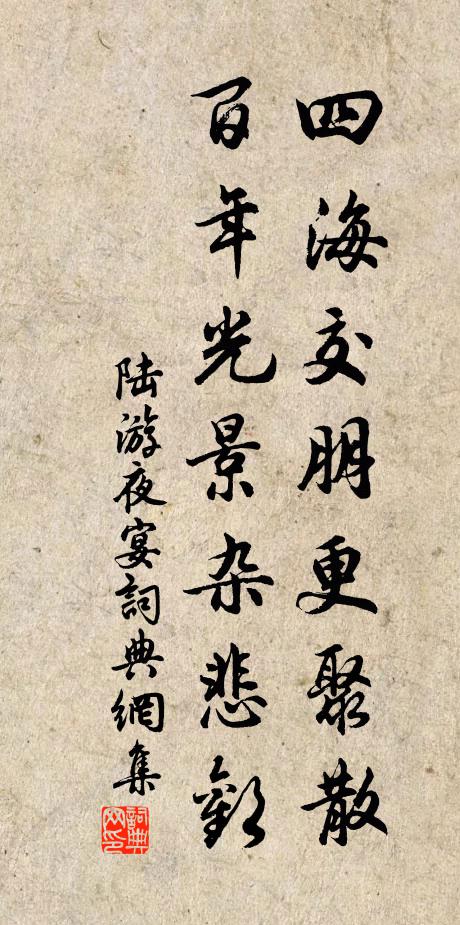 四海交朋更聚散
百年光景杂悲歡
陆游夜宴詞典網集
詞典网印